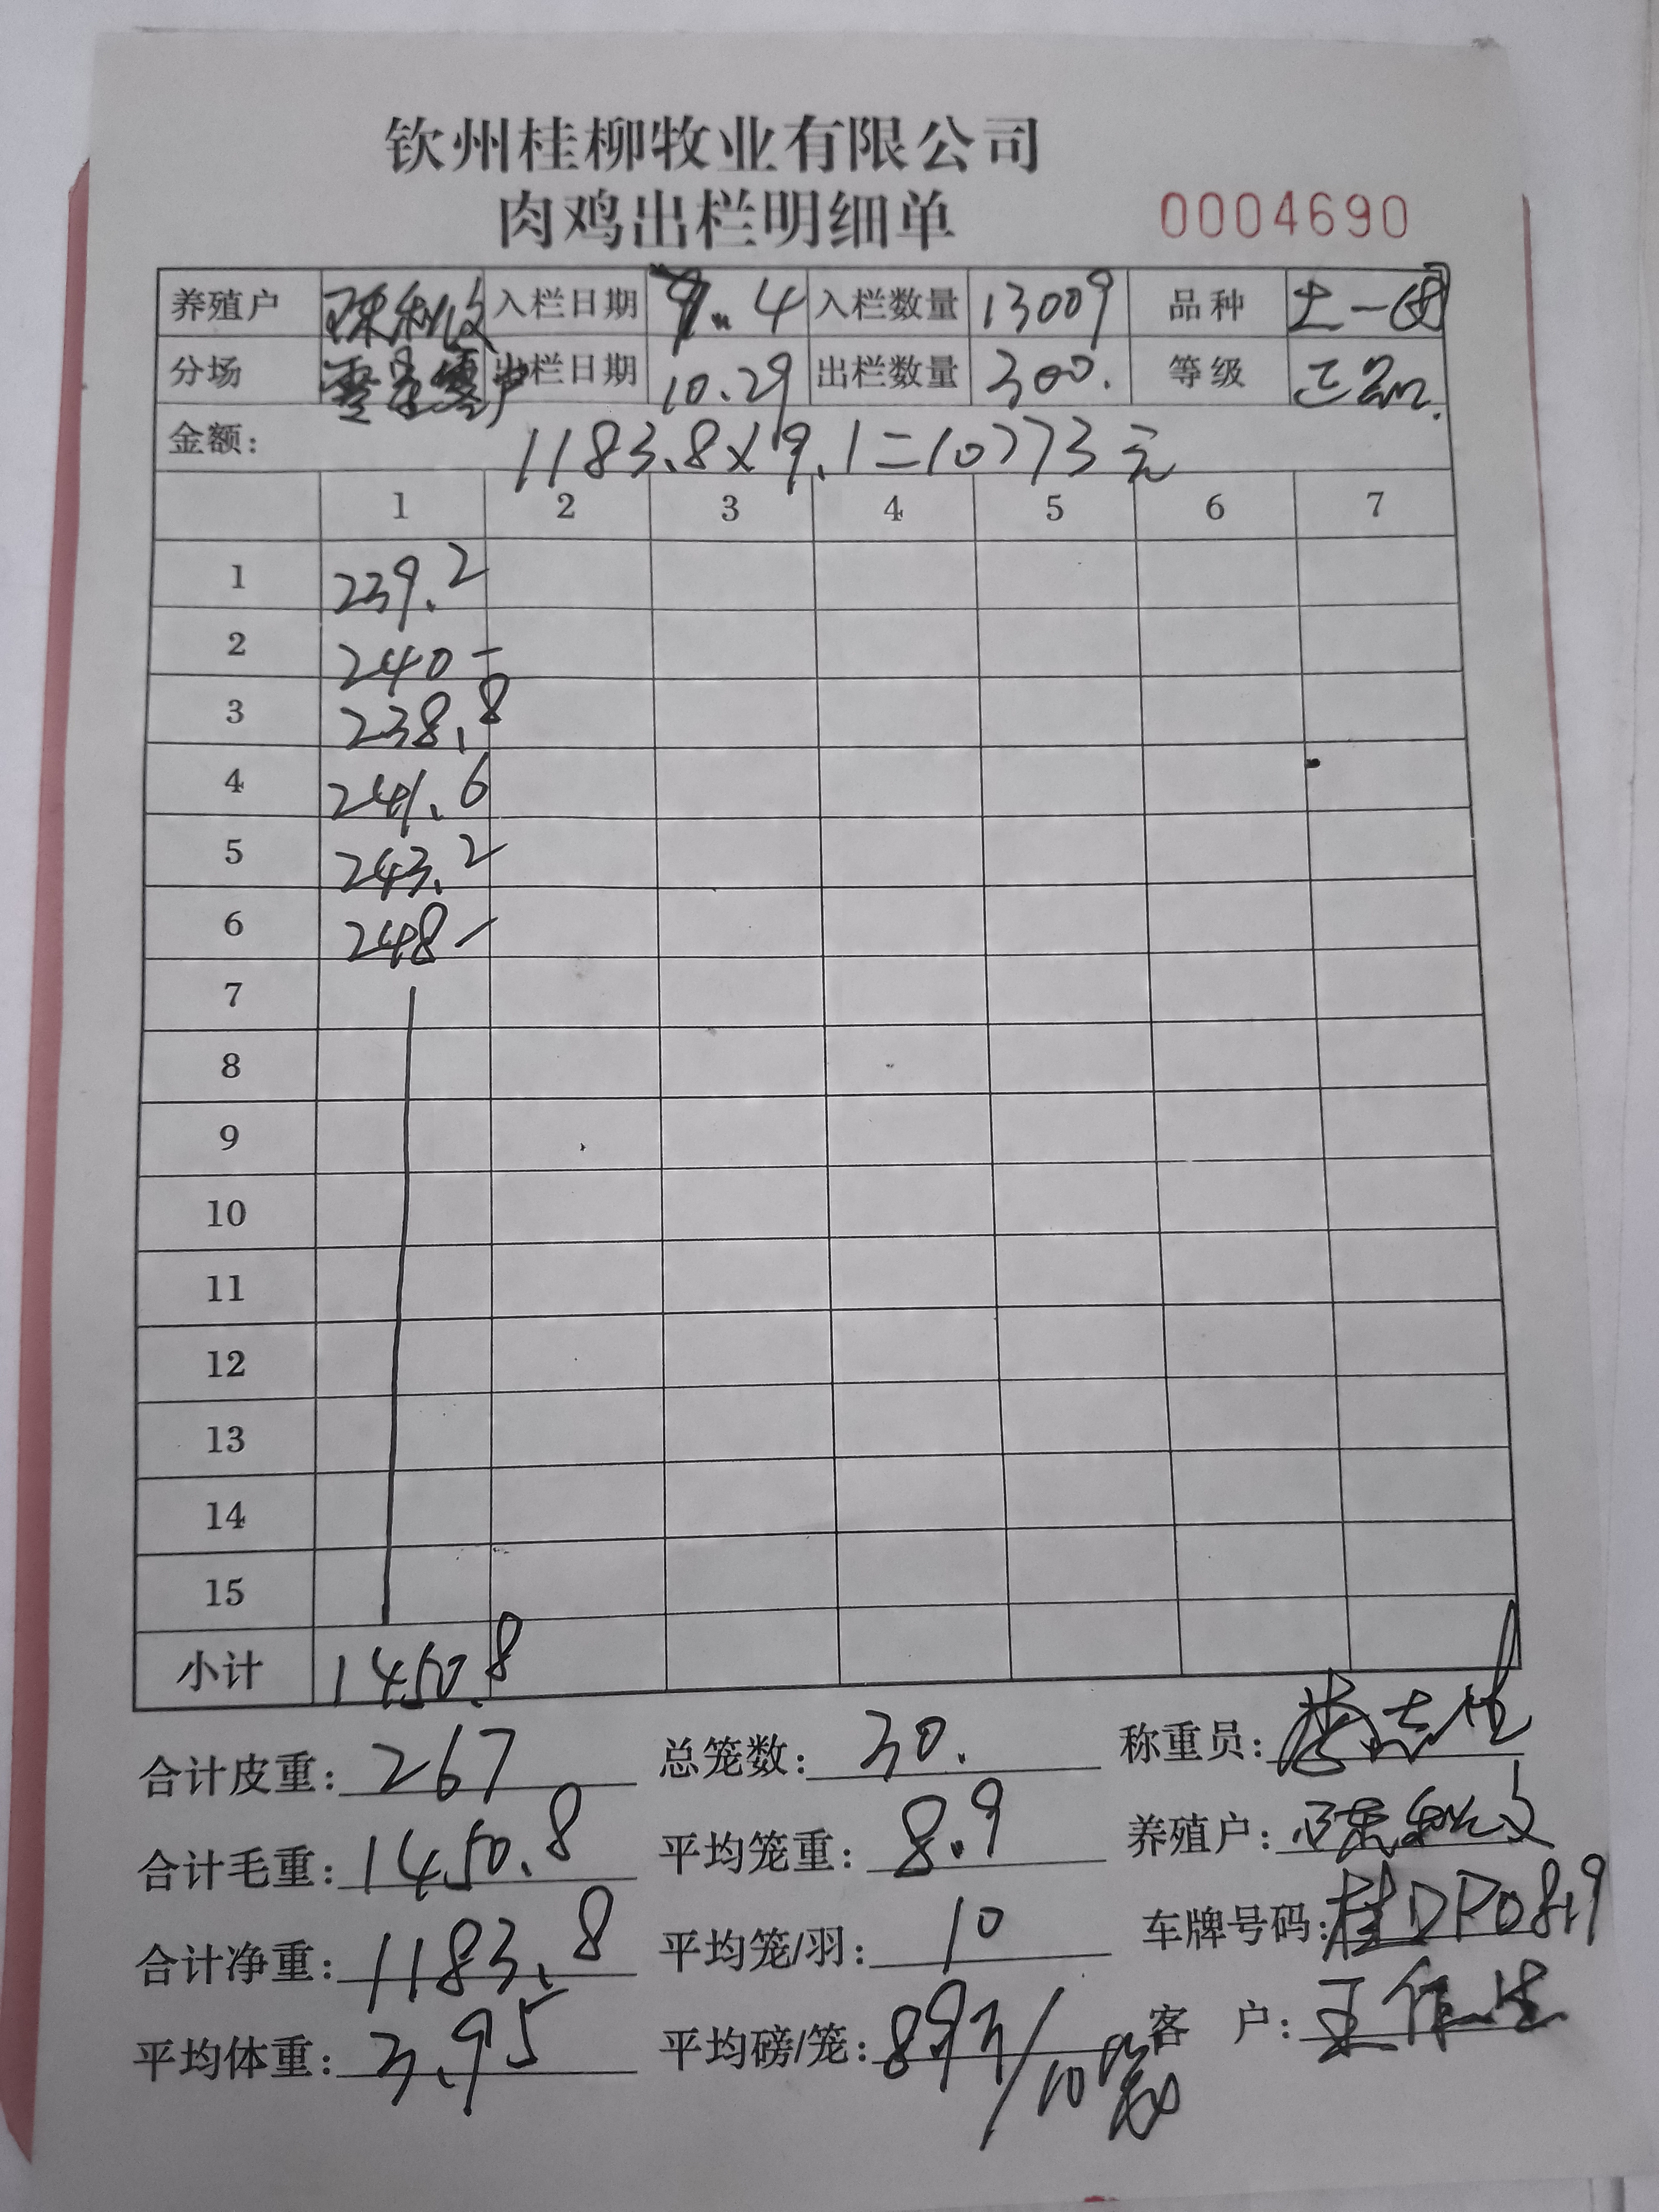 钦州桂柳牧业有限公司
肉鸡出栏明细单 0004690
养殖户 陈 入栏日期 7.4 入栏数量 13009 品种 土一
分场 出栏日期 10.29 出栏数量 300. 等级 正
金额: 1183.8×9.1=10773元
1 2 3 4 5 6 7
1 239.2
2 240-
3 238.8
4 241.6
5 243.2
6 248-
7
8
9
10
11
12
13
14
15
小计 1450.8
合计皮重: 267 总笼数: 30. 称重员: 志
合计毛重: 1450.8 平均笼重: 8.9 养殖户: 陈
合计净重: 1183.8 平均笼/羽: 10 车牌号码: 桂DP0819
平均体重: 3.95 平均磅/笼: 客 户: 王作